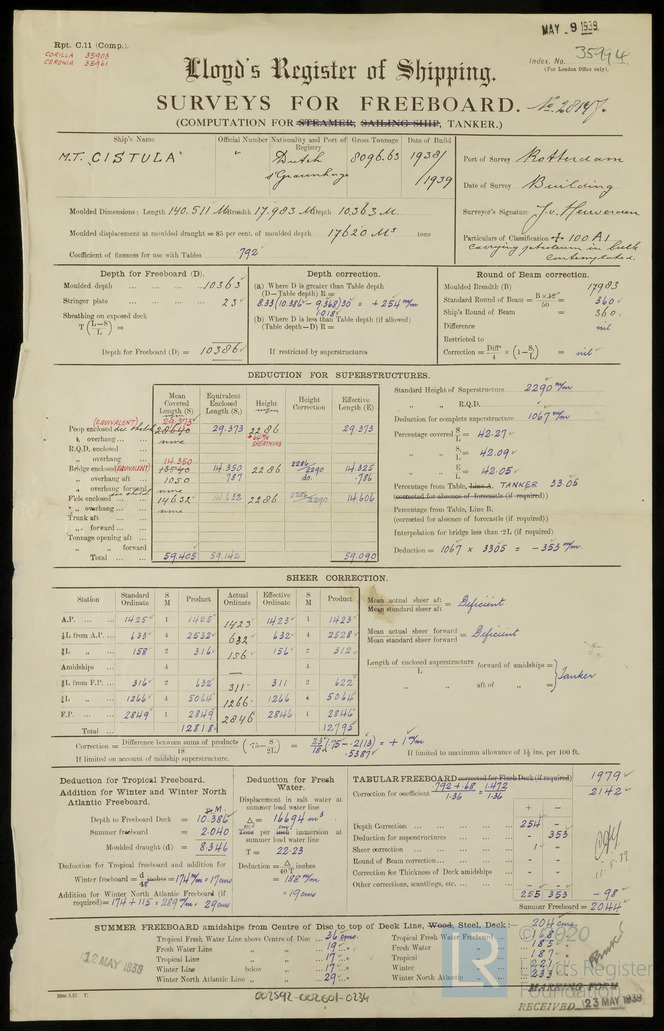 MAY 9 1939
Rpt. C.11 (Comp.).
CORILLA 35903
CERONIA 35961
Index. No. 35994
(For London Office only).
Lloyd's Register of Shipping.
SURVEYS FOR FREEBOARD.
(COMPUTATION FOR STEAMER, SAILING SHIP, TANKER.)
Ship's Name
Official Number
Nationality and Port of Registry
Gross Tonnage
Date of Build
M.T. "CISTULA"
Dutch
s'Gravenhage
8096.63
1938/1939
Port of Survey Rotterdam
Date of Survey Building
Surveyor's Signature
Particulars of Classification + 100 A1
carrying petroleum in bulk
contemplated.
Moulded Dimensions: Length 140.511 M Breadth 17.983 M Depth 10.363 M.
Moulded displacement at moulded draught = 85 per cent. of moulded depth 17620 M³ tons
Coefficient of fineness for use with Tables .792
Depth for Freeboard (D).
Moulded depth 10363
Stringer plate 23
Sheathing on exposed deck
T (L-S/L) =
Depth for Freeboard (D) = 10386
Depth correction.
(a) Where D is greater than Table depth
(D—Table depth) R =
8.33 (10.386 - 9.368) 30 = + 254 m/m
(b) Where D is less than Table depth (if allowed)
(Table depth—D) R =
If restricted by superstructures
Round of Beam correction.
Moulded Breadth (B) 17983
Standard Round of Beam = B×12/50 = 360
Ship's Round of Beam = 360
Difference nil
Restricted to
Correction = Diff/4 × (1-S/L) = nil
DEDUCTION FOR SUPERSTRUCTURES.
Mean Covered Length (S)
Equivalent Enclosed Length (S₁)
Height
Height Correction
Effective Length (E)
(EQUIVALENT) 29.373
Poop enclosed 28640 29.373 2286 29.373
SHEATHING
" overhang none
R.Q.D. enclosed
" overhang 14.350
Bridge enclosed (EQUIVALENT) 13540 14.350 2286 2286/2290 14.325
" overhang aft 1050 787 do. .786
" overhang forward none
F'cle enclosed 14632 14.632 2286 2286/2290 14.606
" overhang none
Trunk aft
" forward
Tonnage opening aft
" " forward
Total 59.405 59.142 59.090
Standard Height of Superstructure 2290 m/m
" " R.Q.D.
Deduction for complete superstructure 1067 m/m
Percentage covered S/L = 42.27
" " S₁/L = 42.09
" " E/L = 42.05
Percentage from Table, Line A. TANKER 33.05
(corrected for absence of forecastle (if required))
Percentage from Table, Line B.
(corrected for absence of forecastle (if required))
Interpolation for bridge less than ·2L (if required)
Deduction = 1067 × 3305 = - 353 m/m.
SHEER CORRECTION.
Station
Standard Ordinate
S M
Product
Actual Ordinate
Effective Ordinate
S M
Product
A.P. 1425 1 1425 1423 1423 1 1423
⅙L from A.P. 633 4 2532 632 632 4 2528
⅓L " 158 2 316 156 156 2 312
Amidships — 4 4
⅓L from F.P. 316 2 632 311 311 2 622
⅙L " 1266 4 5064 1266 1266 4 5064
F.P. 2849 1 2849 2846 2846 1 2846
Total 12818 12795
Mean actual sheer aft
Mean standard sheer aft = Deficient
Mean actual sheer forward
Mean standard sheer forward = Deficient
Length of enclosed superstructure forward of amidships =
L
" " aft of " =
Tanker
Correction = Difference between sums of products/18 (·75 - S/2L) = 23/18 (.75 - .2113) = + 1 m/m
.5387
If limited on account of midship superstructure.
If limited to maximum allowance of 1½ ins. per 100 ft.
Deduction for Tropical Freeboard.
Addition for Winter and Winter North Atlantic Freeboard.
Depth to Freeboard Deck = 10.386
Summer freeboard = 2.040
Moulded draught (d) = 8.346
Deduction for Tropical freeboard and addition for
Winter freeboard = d/48 inches = 174 m/m = 17 cms
Addition for Winter North Atlantic Freeboard (if required) = 174 + 115 = 289 m/m = 29 cms
Deduction for Fresh Water.
Displacement in salt water at summer load water line
Δ = 16694 m³
Tons per inch immersion at summer load water line
T = 22.23
Deduction = Δ/40T inches
= 188 m/m
= 19 cms
TABULAR FREEBOARD corrected for Flush Deck (if required) 1979
Correction for coefficient .792 + .68/1.36 = 1.472/1.36 2142
+ -
Depth Correction 254 -
Deduction for superstructures - 353
Sheer correction 1
Round of Beam correction - -
Correction for Thickness of Deck amidships - -
Other corrections, scantlings, etc. - -
255 353 - 98
Summer Freeboard = 2044
SUMMER FREEBOARD amidships from Centre of Disc to top of Deck Line, Wood, Steel, Deck:— 204 cms
Tropical Fresh Water Line above Centre of Disc 36 cms.
Fresh Water Line " " 19
Tropical Line " " 17
Winter Line below " " 17
Winter North Atlantic Line " " 29
Tropical Fresh Water Freeboard 168
Fresh Water " 185
Tropical " 187
Winter " 221
Winter North Atlantic " 233
12 MAY 1939
MARKING FORM
RECEIVED 23 MAY 1939
002592-002601-0234
LR
© 2020
Lloyd's Register
Foundation